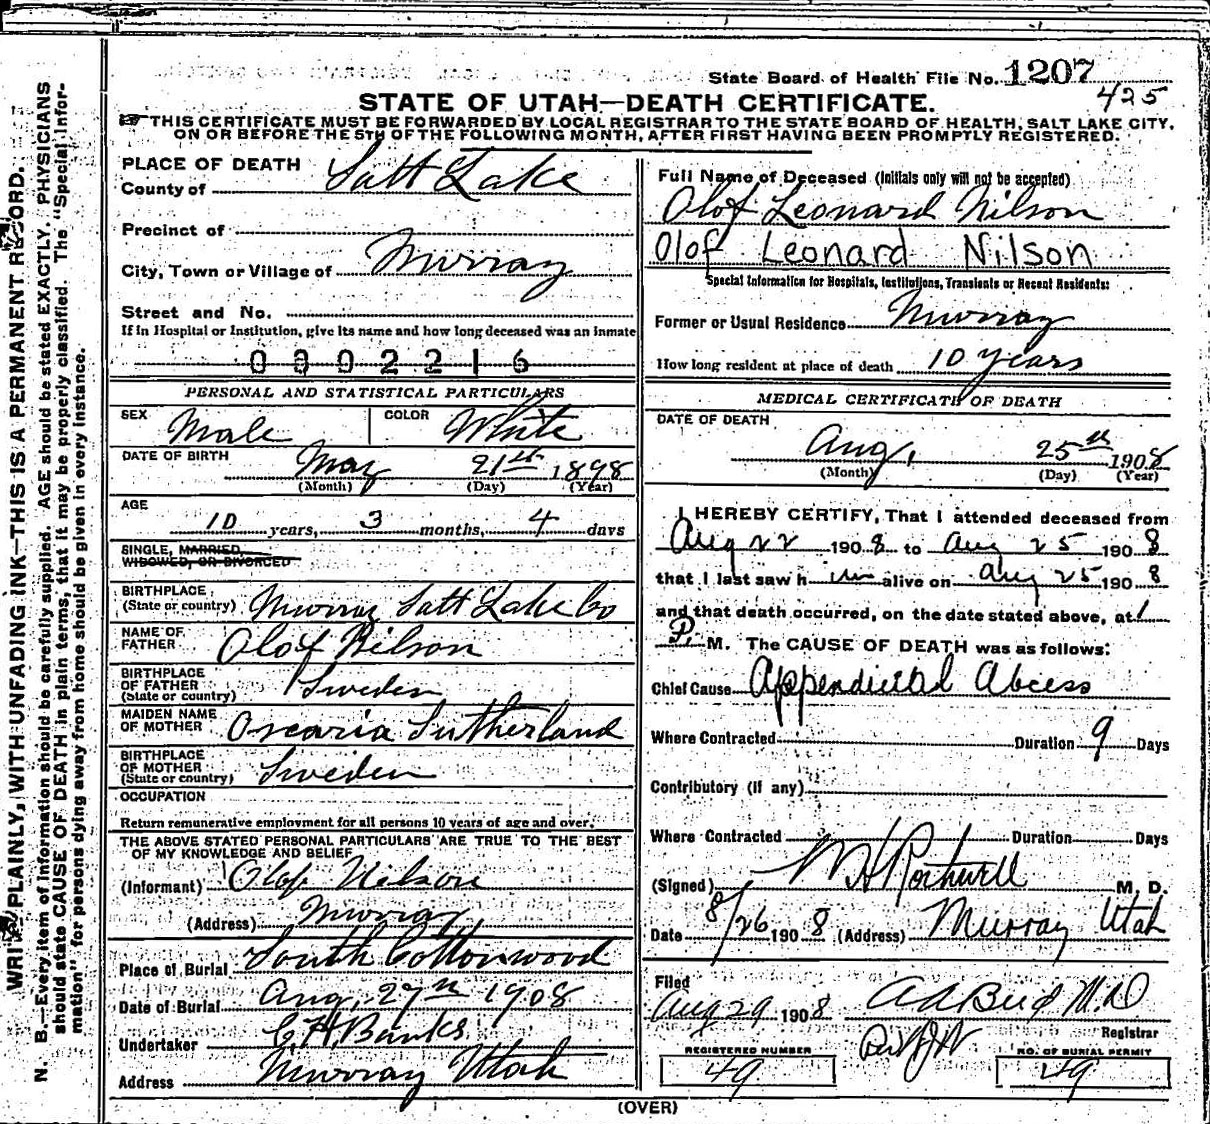 State Board of Health File No. 1207
425
STATE OF UTAH—DEATH CERTIFICATE.
THIS CERTIFICATE MUST BE FORWARDED BY LOCAL REGISTRAR TO THE STATE BOARD OF HEALTH, SALT LAKE CITY,
ON OR BEFORE THE 5TH OF THE FOLLOWING MONTH, AFTER FIRST HAVING BEEN PROMPTLY REGISTERED.
PLACE OF DEATH
County of Salt Lake
Precinct of
City, Town or Village of Murray
Street and No.
If in Hospital or Institution, give its name and how long deceased was an inmate
0002216
PERSONAL AND STATISTICAL PARTICULARS
SEX Male COLOR White
DATE OF BIRTH May 21st 1898
(Month) (Day) (Year)
AGE
10 years, 3 months, 4 days
SINGLE, MARRIED,
WIDOWED, OR DIVORCED
BIRTHPLACE
(State or country) Murray Salt Lake Co
NAME OF
FATHER Olof Nilson
BIRTHPLACE
OF FATHER
(State or country) Sweden
MAIDEN NAME
OF MOTHER Oscaria Sutherland
BIRTHPLACE
OF MOTHER
(State or country) Sweden
OCCUPATION
Return remunerative employment for all persons 10 years of age and over.
THE ABOVE STATED PERSONAL PARTICULARS ARE TRUE TO THE BEST
OF MY KNOWLEDGE AND BELIEF
(Informant) Olof Nilson
(Address) Murray,
Place of Burial South Cottonwood
Date of Burial Aug, 27th 1908
Undertaker C. H. Banks
Address Murray Utah
Full Name of Deceased (Initials only will not be accepted)
Olof Leonard Nilson
Olof Leonard Nilson
Special Information for Hospitals, Institutions, Transients or Recent Residents:
Former or Usual Residence Murray
How long resident at place of death 10 years
MEDICAL CERTIFICATE OF DEATH
DATE OF DEATH
Aug, 25th 1908
(Month) (Day) (Year)
I HEREBY CERTIFY, That I attended deceased from
Aug 22 1908 to Aug 25 1908
that I last saw him alive on Aug 25 1908
and that death occurred, on the date stated above, at 1
P. M. The CAUSE OF DEATH was as follows:
Chief Cause Appendicital Abcess
Where Contracted Duration 9 Days
Contributory (if any)
Where Contracted Duration Days
(Signed) M. D.
Date 8/26 1908 (Address) Murray Utah
Filed
Aug 29 1908
Registrar
REGISTERED NUMBER
49
NO. OF BURIAL PERMIT
49
(OVER)
WRITE PLAINLY, WITH UNFADING INK—THIS IS A PERMANENT RECORD.
N. B.—Every item of information should be carefully supplied. AGE should be stated EXACTLY. PHYSICIANS
should state CAUSE OF DEATH in plain terms, that it may be properly classified. The "Special Infor-
mation" for persons dying away from home should be given in every instance.